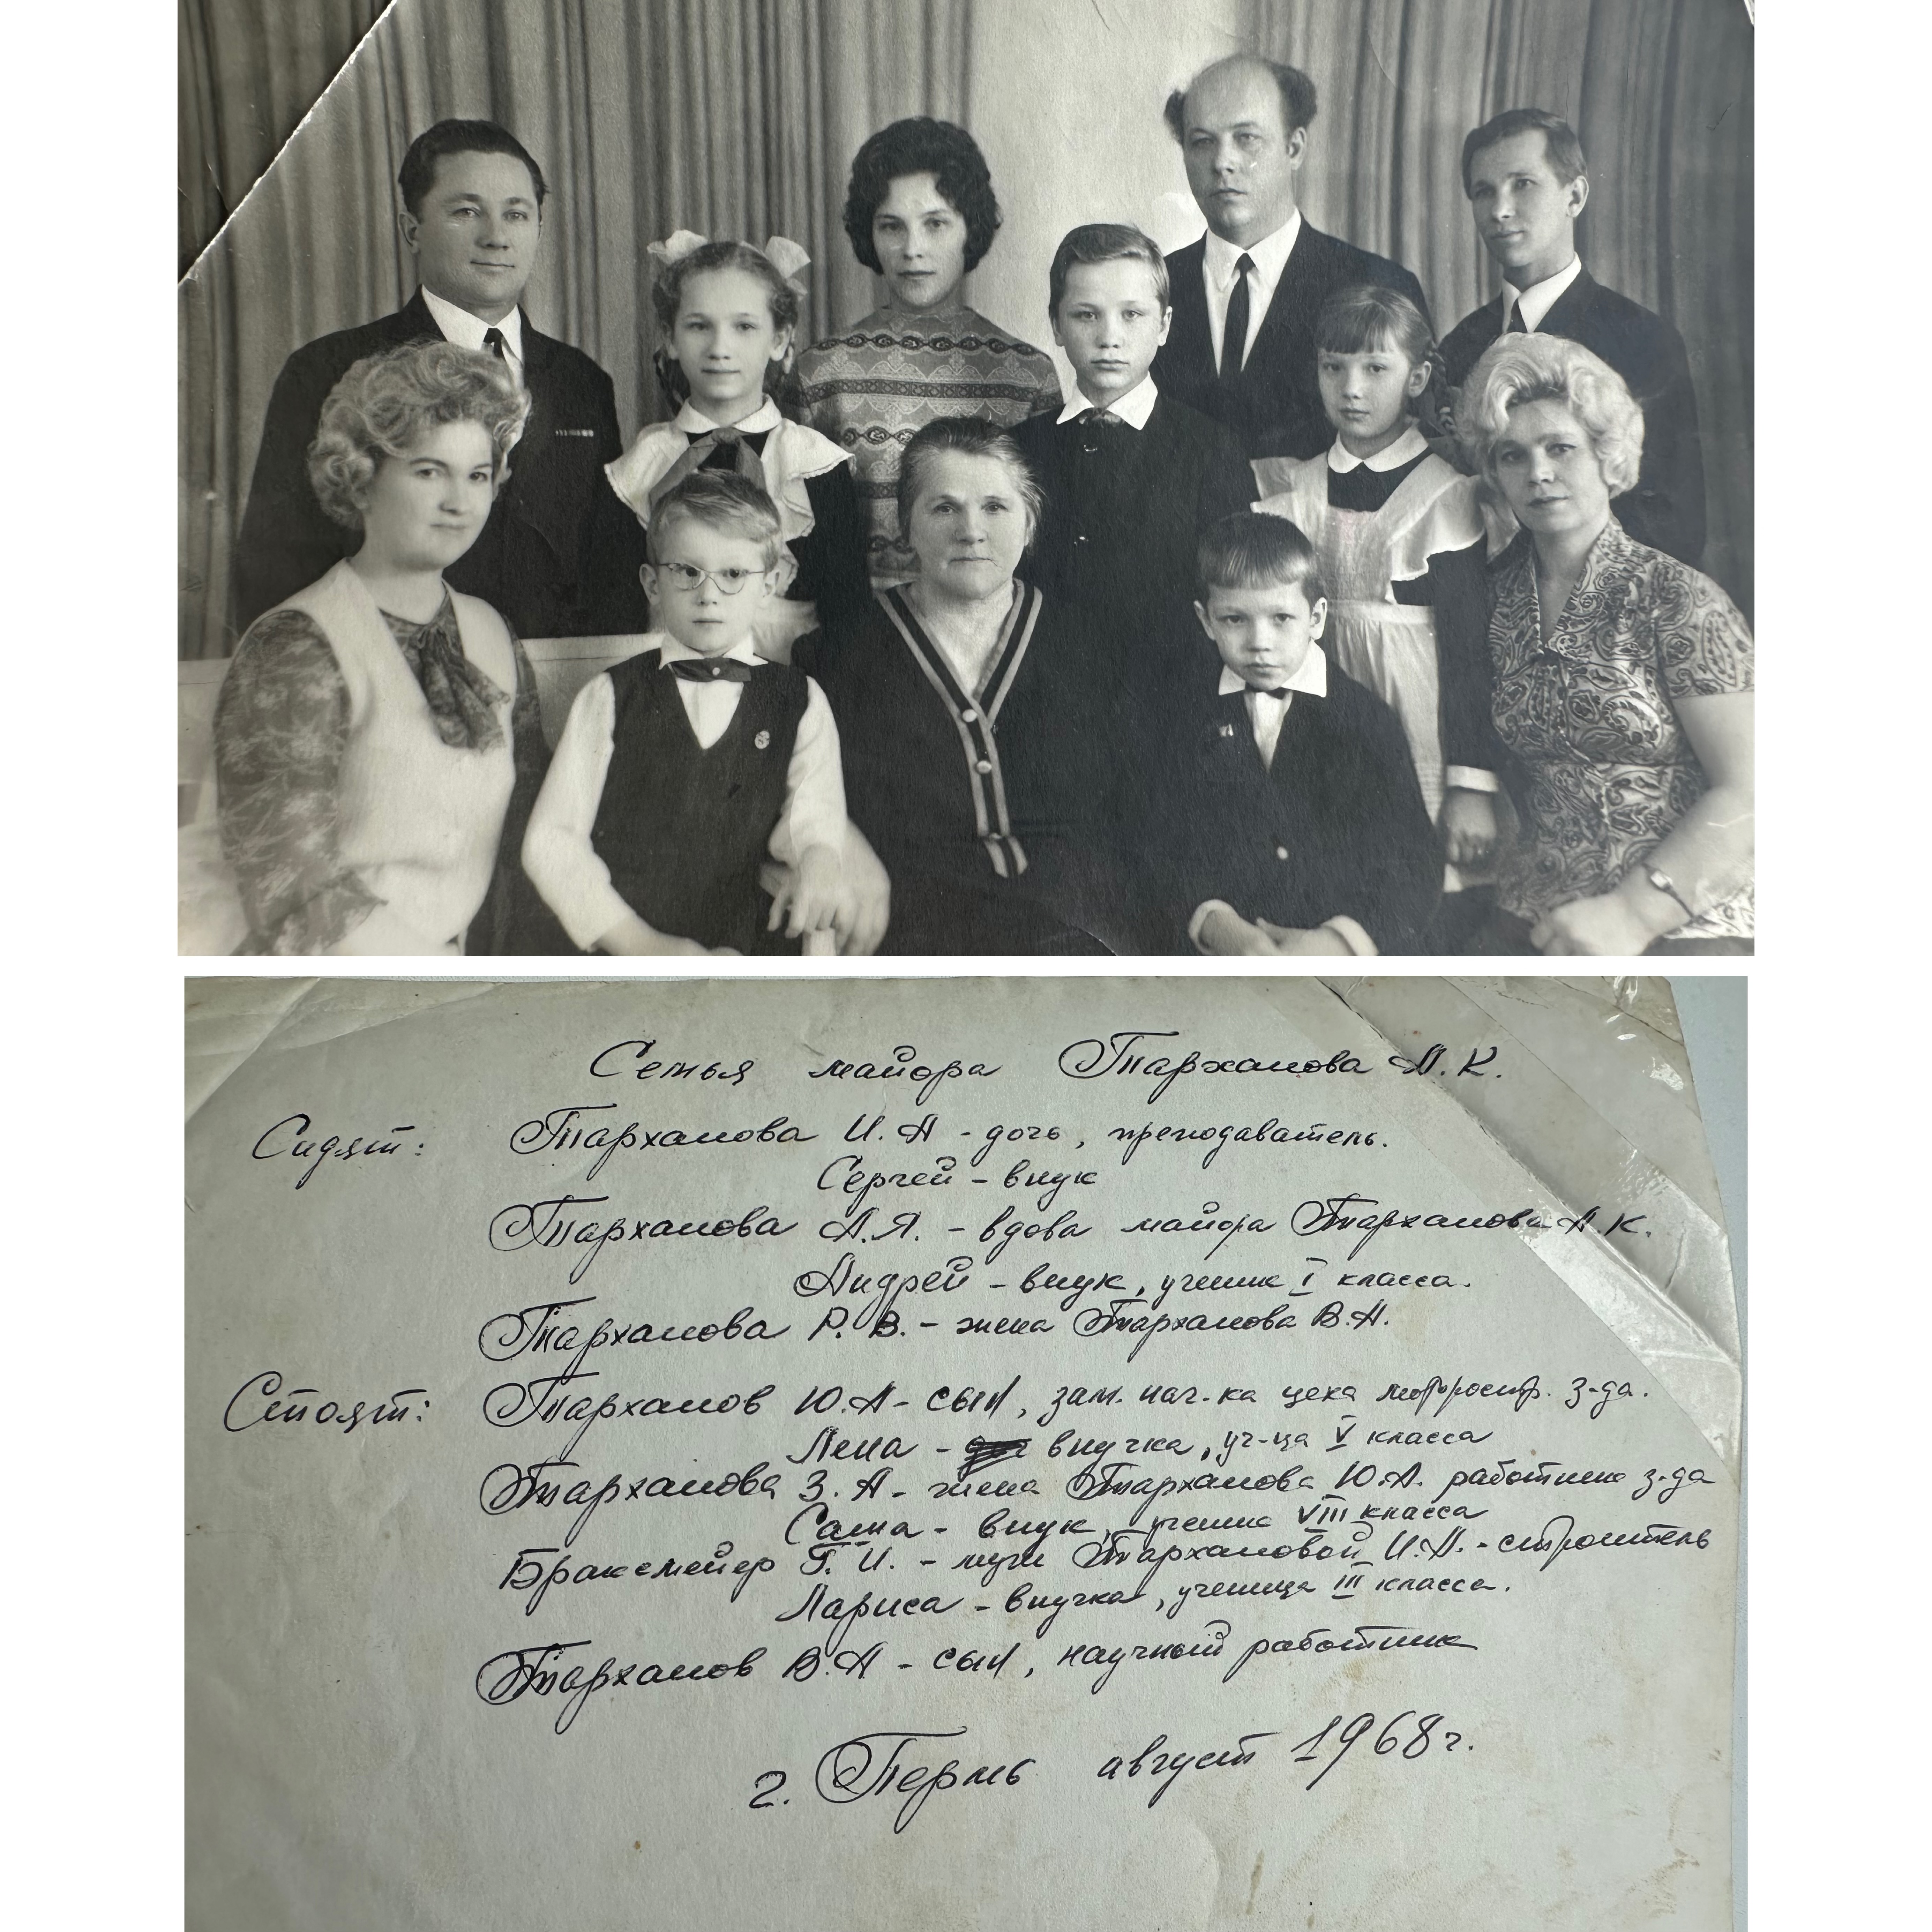 Семья майора Тарханова А.К.
Сидят: Тарханова И.А - дочь, преподаватель.
Сергей - внук
Тарханова А.Я. - вдова майора Тарханова А.К.
Андрей - внук, ученик I класса.
Тарханова Р.В. - жена Тарханова В.А.
Стоят: Тарханов Ю.А - сын, зам. нач-ка цеха з-да.
Лена - внучка, уч-ца V класса
Тарханова З.А - жена Тарханова Ю.А. работник з-да
Саша - внук, ученик VIII класса
Браксмейер Г.И. - муж Тархановой И.А. - строитель
Лариса - внучка, ученица III класса.
Тарханов В.А - сын, научный работник
г. Пермь август 1968 г.